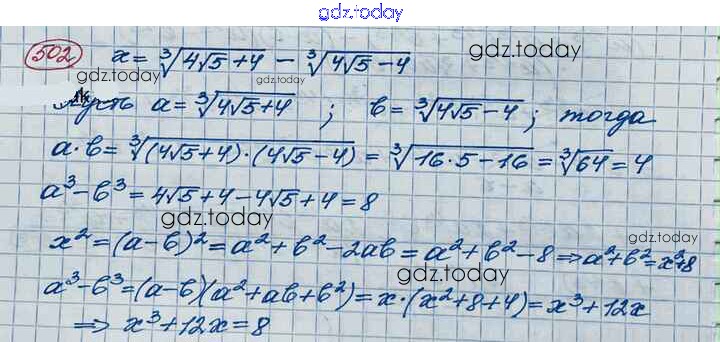 gdz.today
502 x = ∛(4√5+4) − ∛(4√5−4)
gdz.today
gdz.today
Пусть a = ∛(4√5+4) ; b = ∛(4√5−4) ; тогда
a·b = ∛((4√5+4)·(4√5−4)) = ∛(16·5−16) = ∛64 = 4
a³−b³ = 4√5+4−4√5+4 = 8
gdz.today
gdz.today
x² = (a−b)² = a²+b²−2ab = a²+b²−8 ⇒ a²+b² = x²+8
gdz.today
a³−b³ = (a−b)(a²+ab+b²) = x·(x²+8+4) = x³+12x
⇒ x³+12x = 8